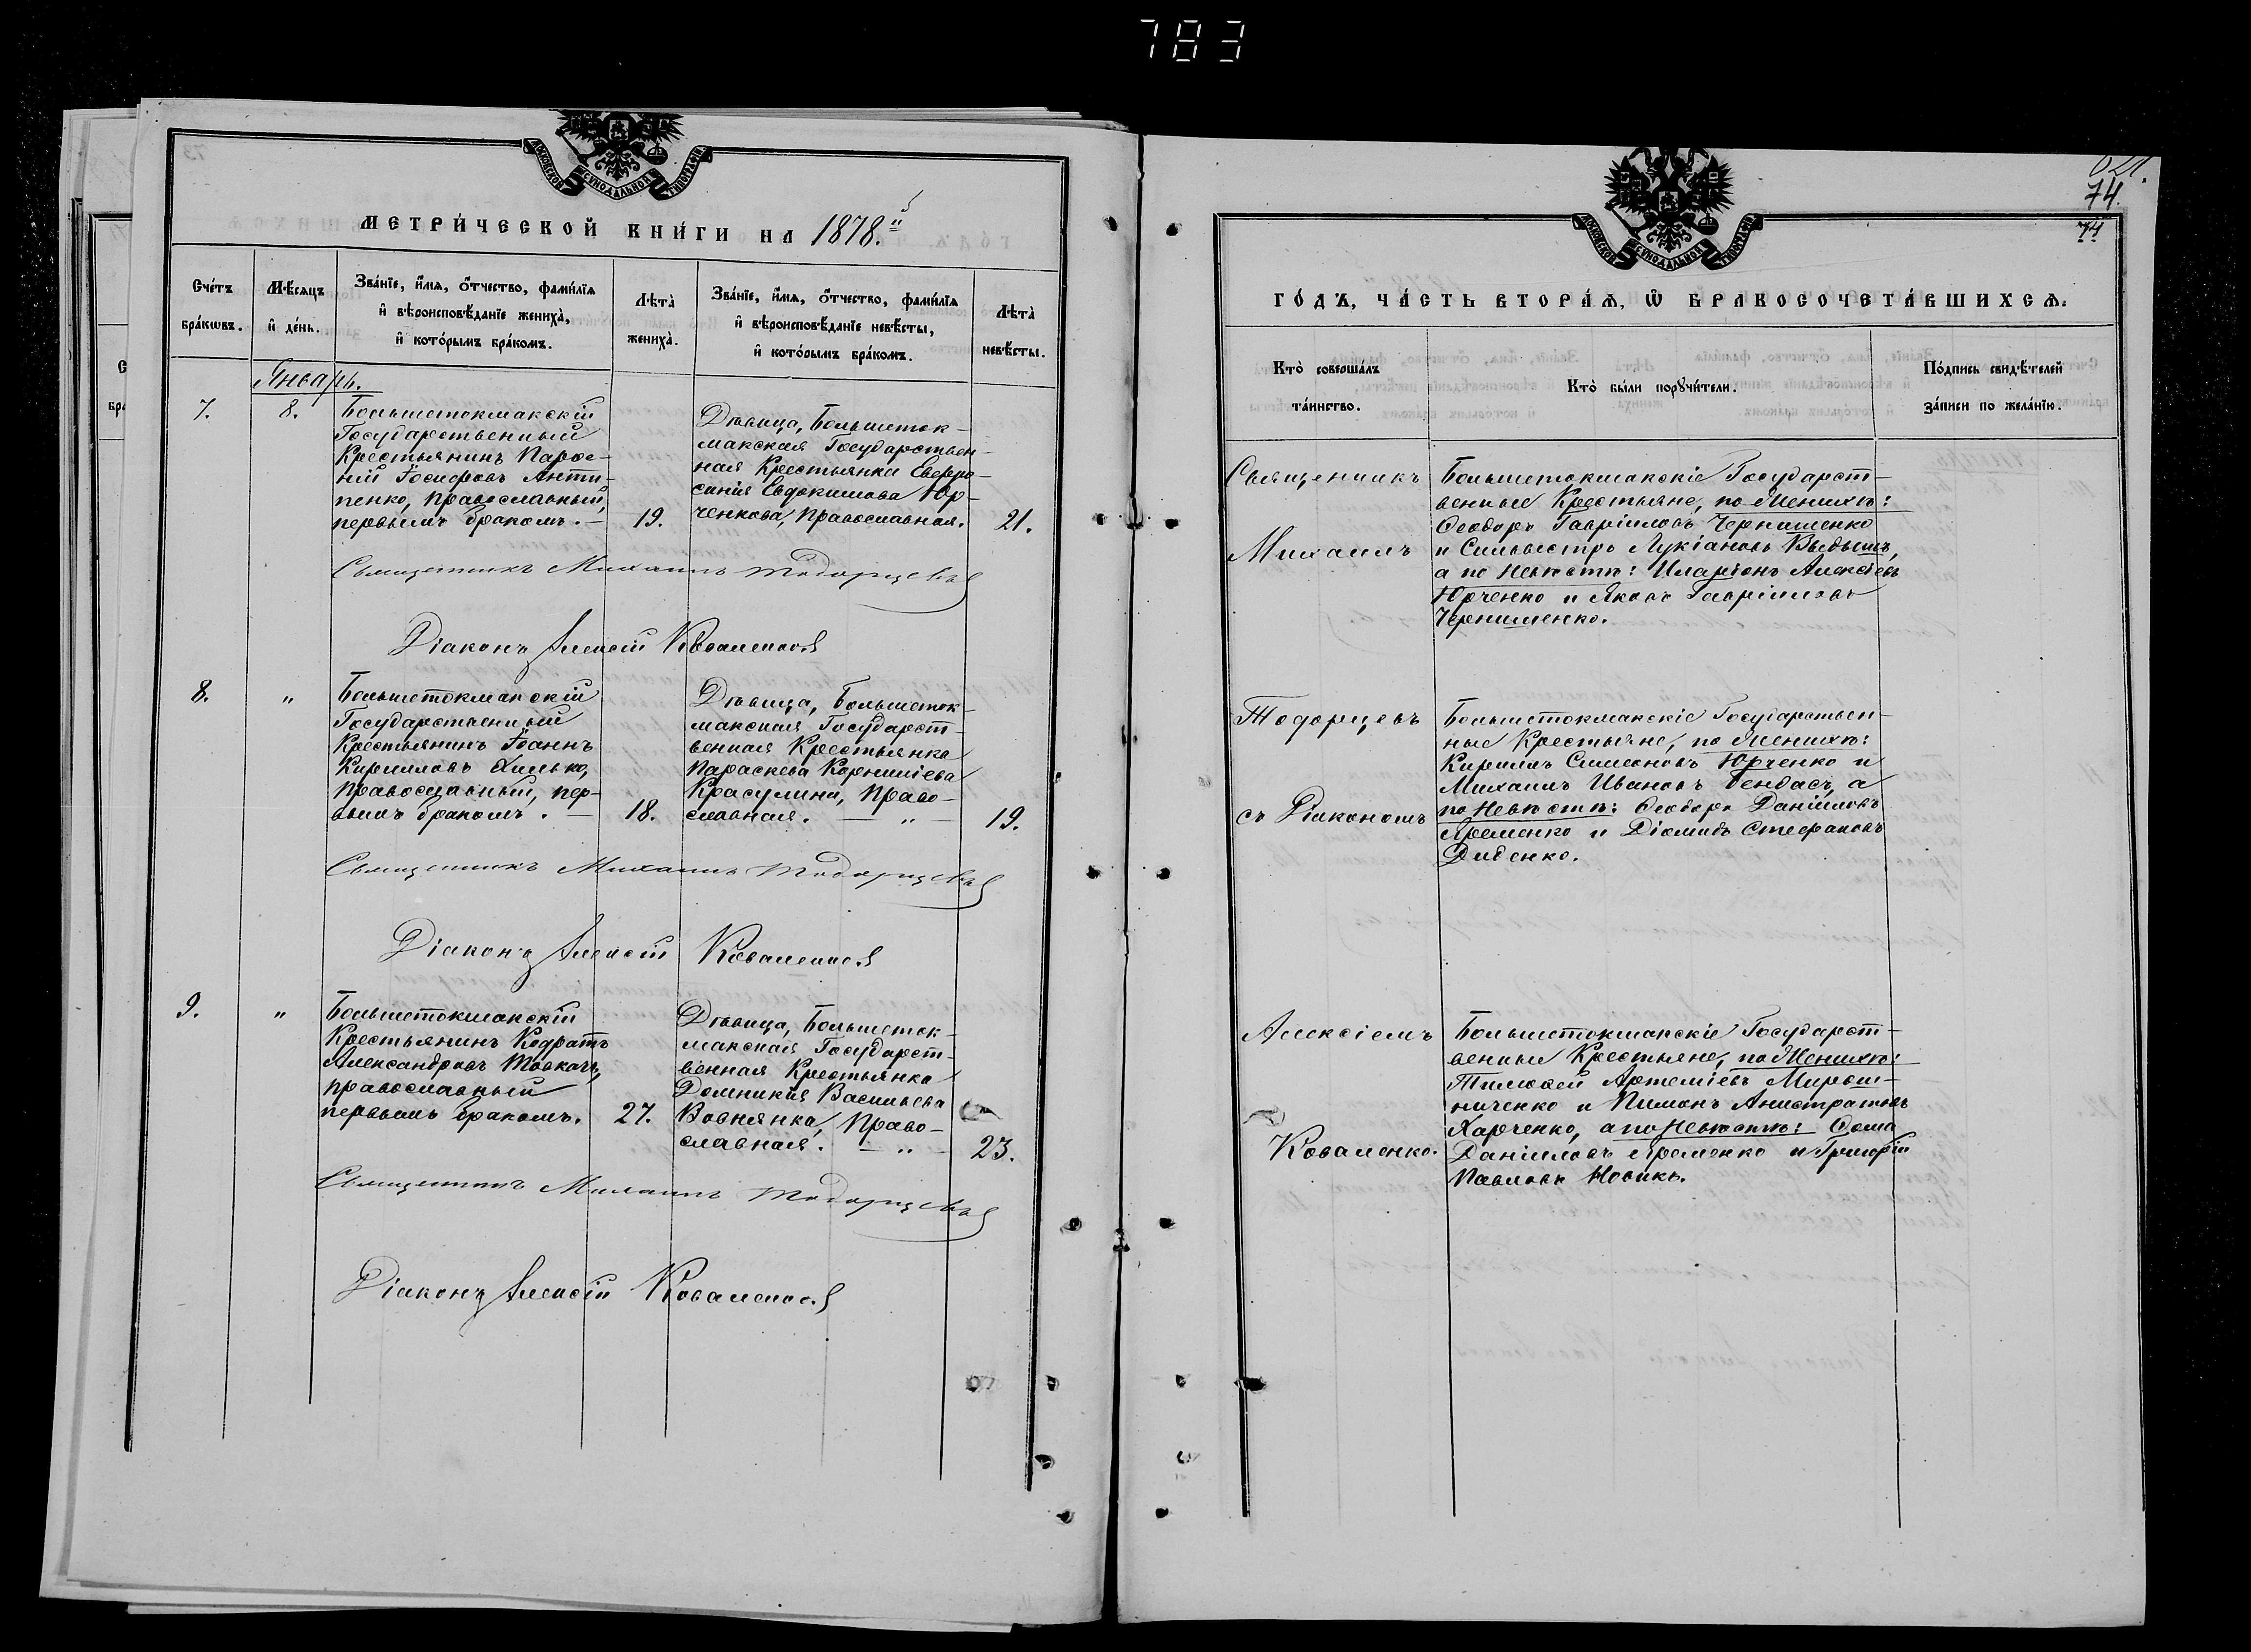 783
МОСКОВСКОЙ СУНОДАЛЬНОЙ ТИПОГРАФІИ
МЕТРИ́ЧЕСКОЙ КНИ́ГИ НА 1878.й
Сче́тъ бра́кωвъ.
Мѣ́сяцъ и҆ де́нь.
Зва́нїе, и҆́мѧ, ѻ҆́тчество, фами́лїѧ
и҆ вѣроисповѣ́данїе жениха̀,
и҆ кото́рымъ бра́комъ.
Лѣта̀ жениха̀.
Зва́нїе, и҆́мѧ, ѻ҆́тчество, фами́лїѧ
и҆ вѣроисповѣ́данїе невѣ́сты,
и҆ кото́рымъ бра́комъ.
Лѣта̀ невѣ́сты.
Январь.
7.
8.
Большетокмакскій
Государственный
Крестьянинъ Парѳе-
ній Іосифовъ Анти-
пенко, православный,
первымъ бракомъ. —
19.
Дѣвица, Большеток-
макская Государствен-
ная Крестьянка Евфро-
синія Евдокимова Юр-
ченкова, Православная.
21.
Священникъ Михаилъ Тодорцевъ
Діаконъ Алексій Коваленко
8.
"
Большетокмакскій
Государственный
Крестьянинъ Іоаннъ
Кирилловъ Хилько,
Православный, пер-
вымъ бракомъ. —
18.
Дѣвица, Большеток-
макская Государст-
венная Крестьянка
Параскева Корниліева
Красулина, Право-
славная. — " —
19.
Священникъ Михаилъ Тодорцевъ
Діаконъ Алексій Коваленко
9.
"
Большетокмакскій
Крестьянинъ Кодратъ
Александровъ Товкачъ,
православный
первымъ бракомъ.
27.
Дѣвица, Большеток-
макская Государст-
венная Крестьянка
Домникія Васильева
Вовнянка, Право-
славная. — " —
23.
Священникъ Михаилъ Тодорцевъ
Діаконъ Алексій Коваленко
74.
74
МОСКОВСКОЙ СУНОДАЛЬНОЙ ТИПОГРАФІИ
ГО́ДЪ, ЧА́СТЬ ВТОРА́Ѧ, Ѽ БРАКОСОЧЕТА́ВШИХСѦ.
Кто̀ соверша́лъ
та́инство.
Кто̀ бы́ли порꙋчи́тели.
По́дпись свидѣ́телей
за́писи по жела́нїю.
Священникъ
Михаилъ
Тодорцевъ
съ Діакономъ
Алексіемъ
Коваленко.
Большетокмакскіе Государст-
венные Крестьяне, по Женихѣ:
Ѳеодоръ Гавріиловъ Чернишенко
и Сильвестръ Лукіановъ Выдышъ,
а по Невѣстѣ: Иларіонъ Алексіевъ
Юрченко и Яковъ Гавріиловъ
Чернишенко.
Большетокмакскіе Государствен-
ные Крестьяне, по Женихѣ:
Кириллъ Симеоновъ Юрченко и
Михаилъ Ивановъ Бендасъ, а
по Невѣстѣ: Ѳеодоръ Даніиловъ
Яременко и Діомидъ Стефановъ
Диденко.
Большетокмакскіе Государст-
венные Крестьяне, по Женихѣ:
Тимоѳей Артеміевъ Мирош-
ниченко и Пимонъ Анистратовъ
Харченко, а по Невѣстѣ: Ѳома
Даніиловъ Яременко и Григорій
Павловъ Носикъ.